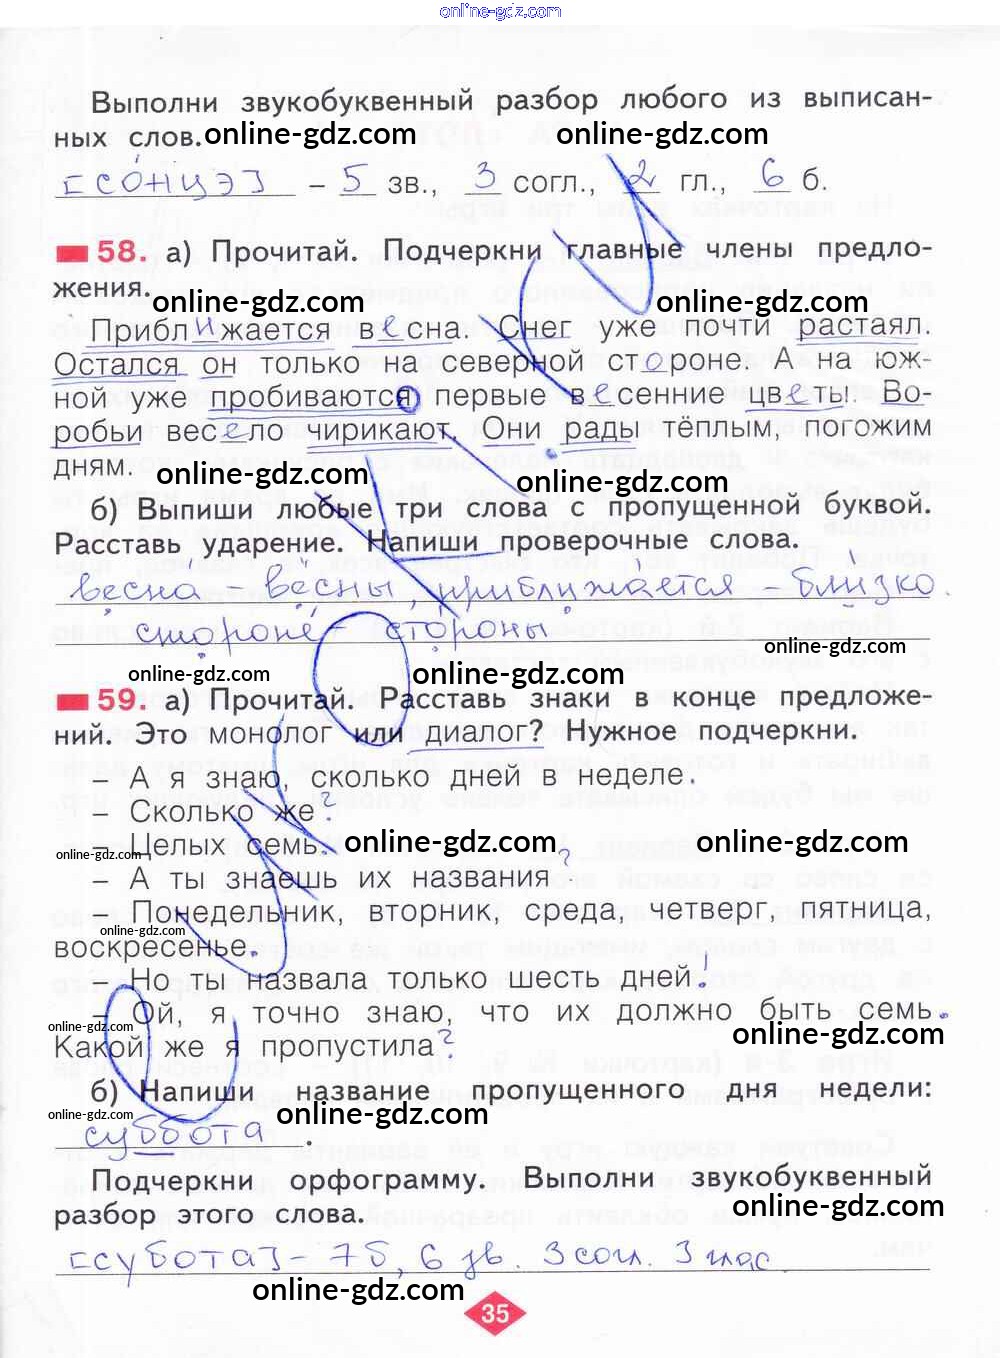 online-gdz.com
Выполни звукобуквенный разбор любого из выписан-
ных слов.
online-gdz.com online-gdz.com
[сонцэ] – 5 зв., 3 согл., 2 гл., 6 б.
58. а) Прочитай. Подчеркни главные члены предло-
жения.
online-gdz.com online-gdz.com
Приближается весна. Снег уже почти растаял.
Остался он только на северной стороне. А на юж-
ной уже пробиваются первые весенние цветы!. Во-
робьи весело чирикают. Они рады тёплым, погожим
дням.
online-gdz.com online-gdz.com
б) Выпиши любые три слова с пропущенной буквой.
Расставь ударение. Напиши проверочные слова.
весна – вёсны, приближается – близко.
стороне – стороны
online-gdz.com online-gdz.com online-gdz.com
59. а) Прочитай. Расставь знаки в конце предложе-
ний. Это монолог или диалог? Нужное подчеркни.
– А я знаю, сколько дней в неделе.
– Сколько же?
– Целых семь.
online-gdz.com online-gdz.com online-gdz.com
– А ты знаешь их названия?
– Понедельник, вторник, среда, четверг, пятница,
воскресенье.
online-gdz.com
– Но ты назвала только шесть дней!
– Ой, я точно знаю, что их должно быть семь.
online-gdz.com online-gdz.com
Какой же я пропустила?
б) Напиши название пропущенного дня недели:
online-gdz.com online-gdz.com
суббота.
Подчеркни орфограмму. Выполни звукобуквенный
разбор этого слова.
online-gdz.com
[субота] – 7б, 6 зв. 3 согл. 3 глас.
online-gdz.com
35